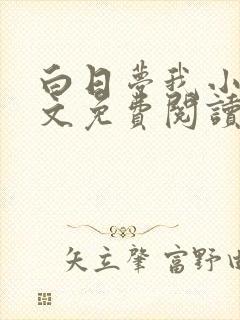 白日夢我 小
文免費閱讀
矢立肇 富野由